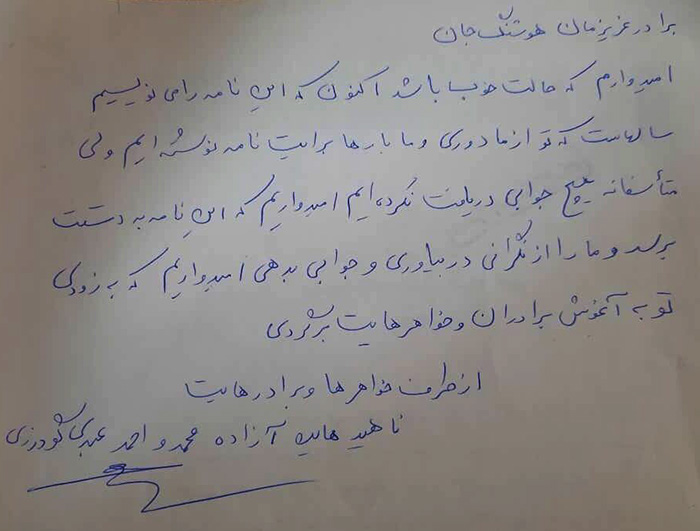 برادر عزیزمان هوشنگ جان
امیدوارم که حالت خوب باشد اکنون که این نامه را می نویسیم
سالهاست که تو از ما دوری و ما بارها برایت نامه نوشته ایم ولی
متأسفانه هیچ جوابی دریافت نکرده ایم امیدواریم که این نامه به دستت
برسد و ما را از نگرانی در بیاوری و جوابی بدهی امیدواریم که به زودی
تو به آغوش برادران و خواهرهایت برگردی
از طرف خواهرها و برادرهایت
ناهید هایده آزاده محمد و احمد عبدی گودرزی